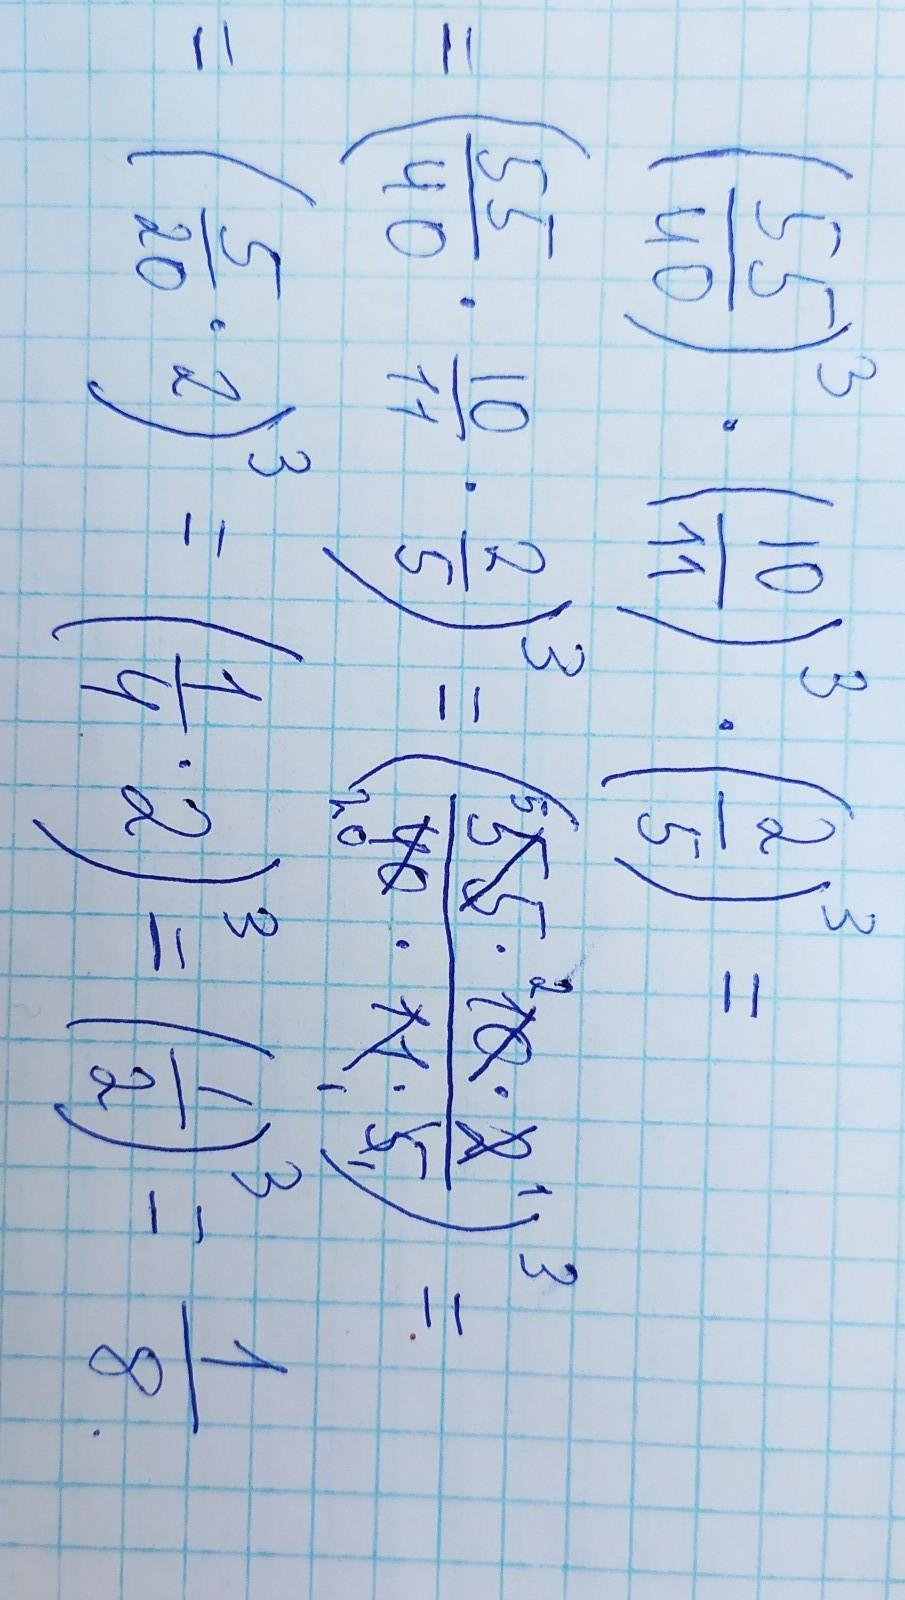 (55/40)³ · (10/11)³ · (2/5)³ =
= (55/40 · 10/11 · 2/5)³ = (55⁵ · 10² · 2¹ / 40₂₀ · 11₁ · 5₁)³ =
= (5/20 · 2)³ = (1/4 · 2)³ = (1/2)³ = 1/8.